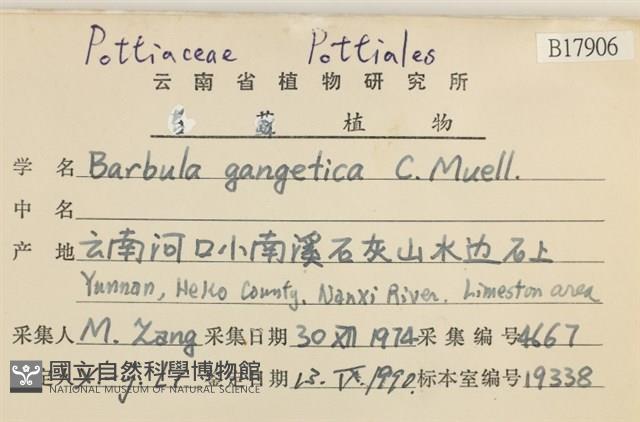 Pottiaceae Pottiales
B17906
云南省植物研究所
苔藓植物
学名 Barbula gangetica C. Muell.
中名
产地 云南河口小南溪石灰山水边石上
Yunnan, Heko County, Nanxi River. Limeston area
采集人 M. Zang 采集日期 30 XII 1974 采集编号 4667
定日期 13. IX. 1990. 标本室编号 19338
國立自然科學博物館
NATIONAL MUSEUM OF NATURAL SCIENCE